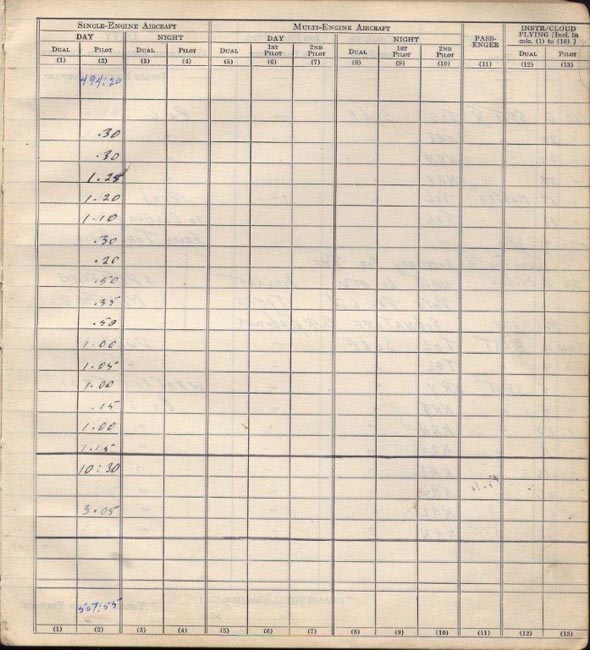 SINGLE-ENGINE AIRCRAFT MULTI-ENGINE AIRCRAFT PASS-ENGER INSTR/CLOUD
FLYING [Incl. in
cols. (1) to (10) ]
DAY NIGHT DAY NIGHT
DUAL PILOT DUAL PILOT DUAL 1ST PILOT 2ND PILOT DUAL 1ST PILOT 2ND PILOT DUAL PILOT
(1) (2) (3) (4) (5) (6) (7) (8) (9) (10) (11) (12) (13)
494:20
.30
.30
1.25
1.20
1.10
.30
.20
.50
.35
.50
1.00
1.05
1.00
.15
1.00
1.15
10:30
3.05
507:55
(1) (2) (3) (4) (5) (6) (7) (8) (9) (10) (11) (12) (13)